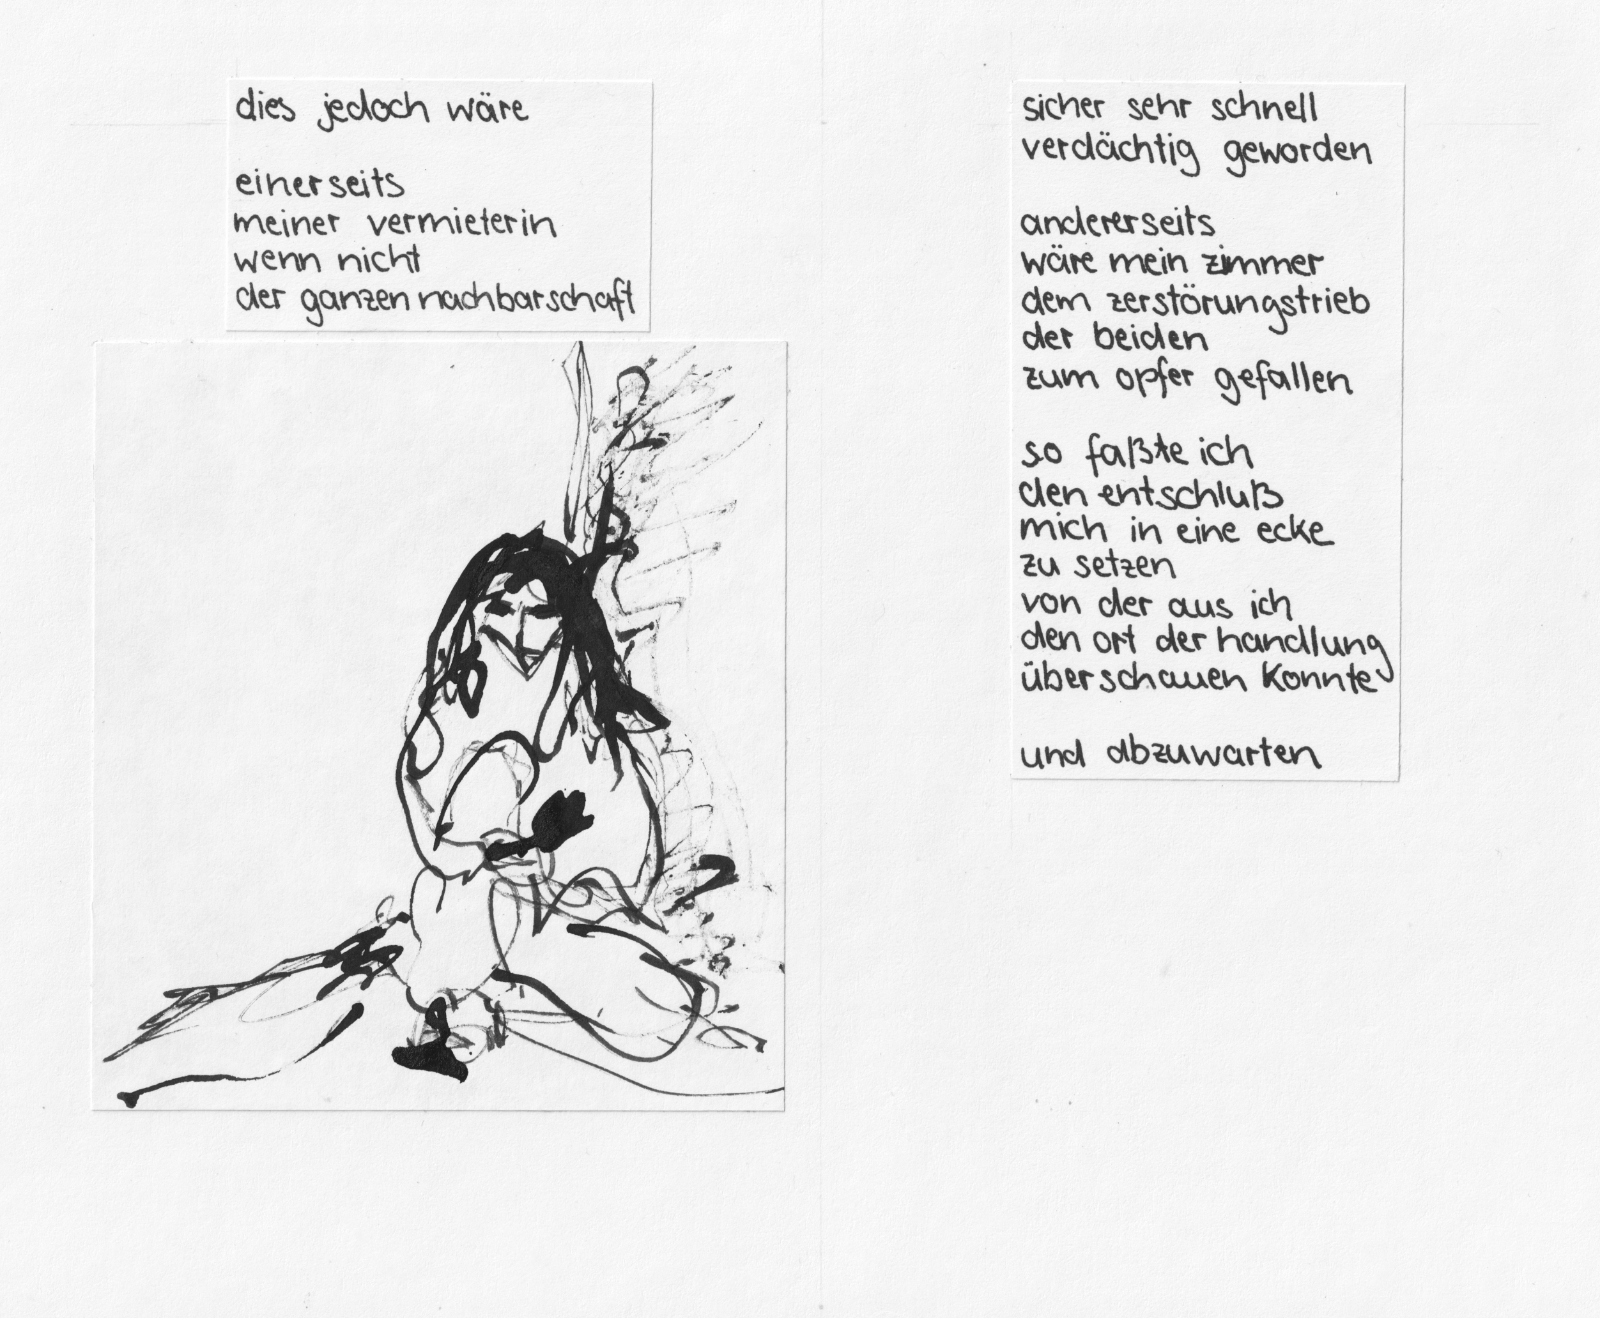 dies jedoch wäre
einerseits
meiner vermieterin
wenn nicht
der ganzen nachbarschaft
sicher sehr schnell
verdächtig geworden
andererseits
wäre mein zimmer
dem zerstörungstrieb
der beiden
zum opfer gefallen
so faßte ich
den entschluß
mich in eine ecke
zu setzen
von der aus ich
den ort der handlung
überschauen konnte
und abzuwarten